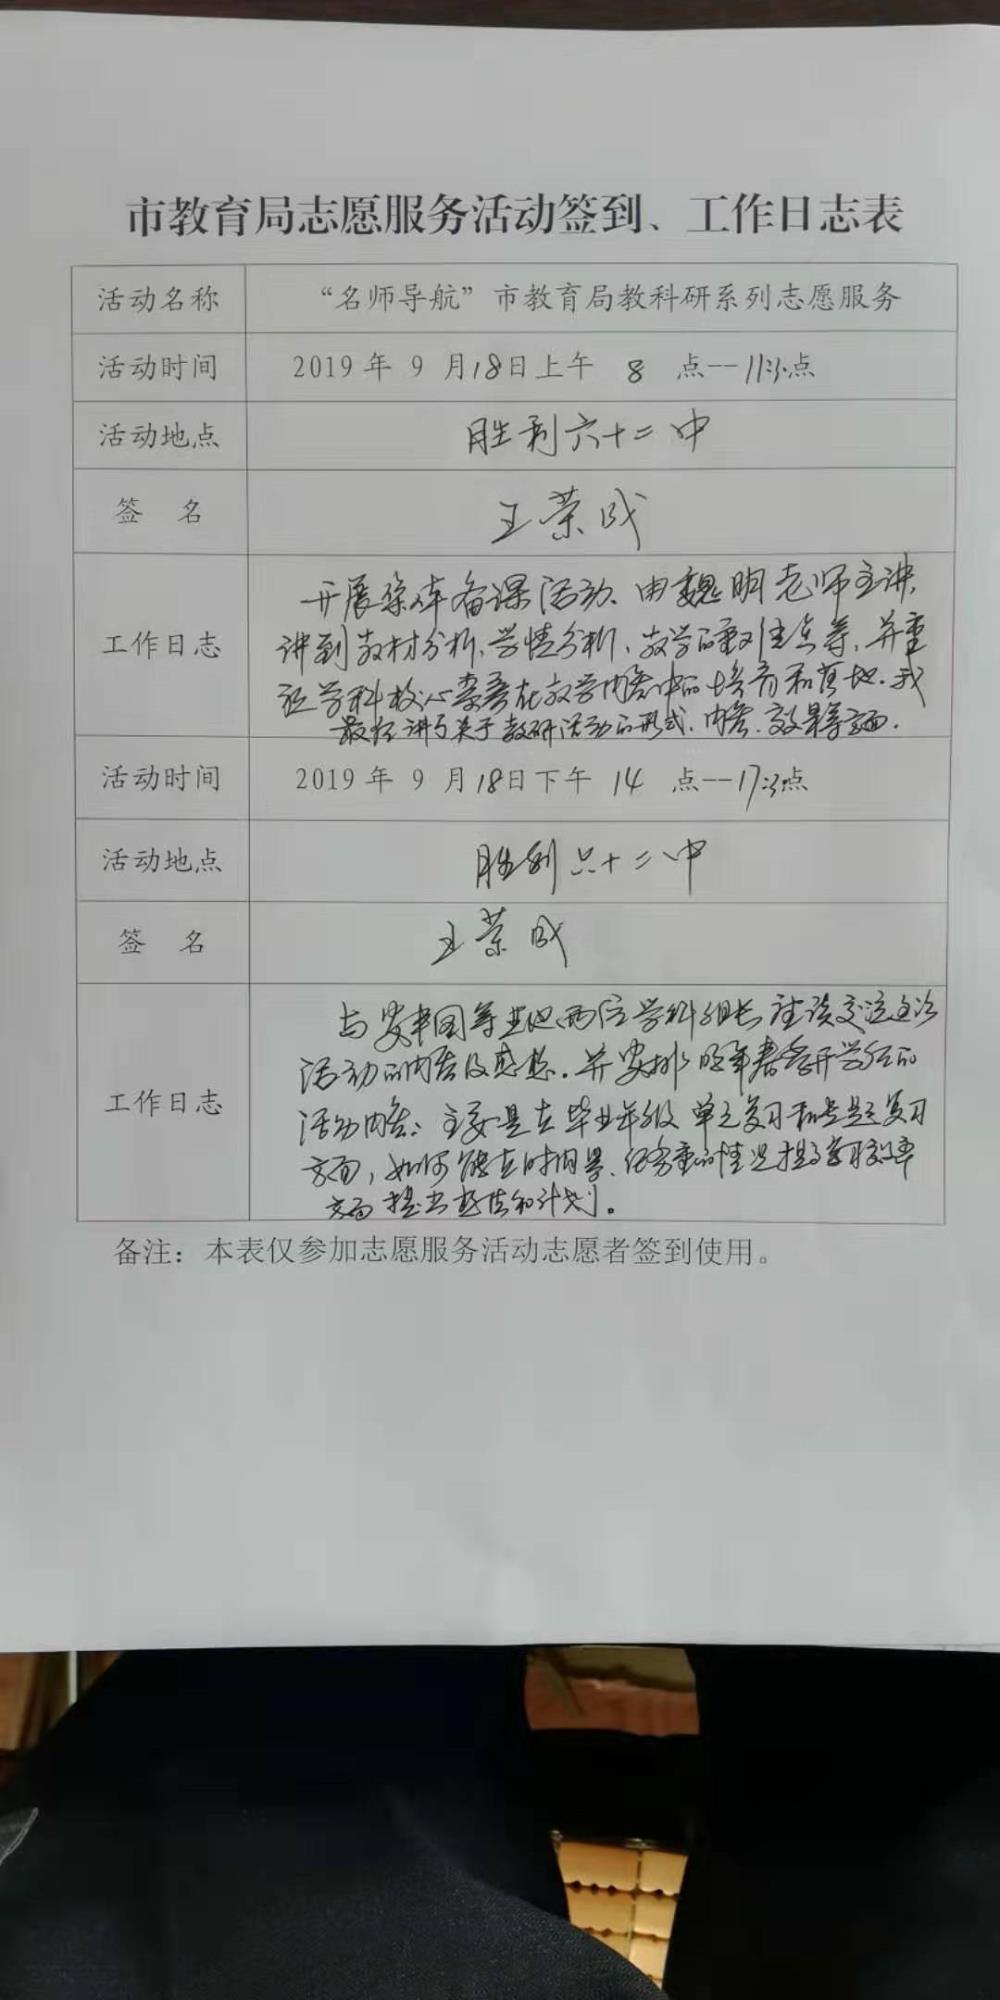 市教育局志愿服务活动签到、工作日志表
活动名称 “名师导航”市教育局教科研系列志愿服务
活动时间 2019年 9 月18日上午 8 点--11:30点
活动地点 胜利六十二中
签 名 王荣成
工作日志
开展集体备课活动、由魏明老师主讲,
讲到教材分析、学情分析、教学的重难点等,并重
视学科核心素养在教学内容中的培育和落地.我
最后讲了关于教研活动的形式、内容、效果等方面.
活动时间 2019年 9 月18日下午 14 点--17:30点
活动地点 胜利六十二中
签 名 王荣成
工作日志
与 等 两位学科组长座谈交流这次
活动的内容及感想.并安排 春季开学后的
活动内容:主要是在毕业年级单元复习和专题复习
方面,如何能在时间 、任务重的情况提高复习效率
方面提出 和计划。
备注：本表仅参加志愿服务活动志愿者签到使用。